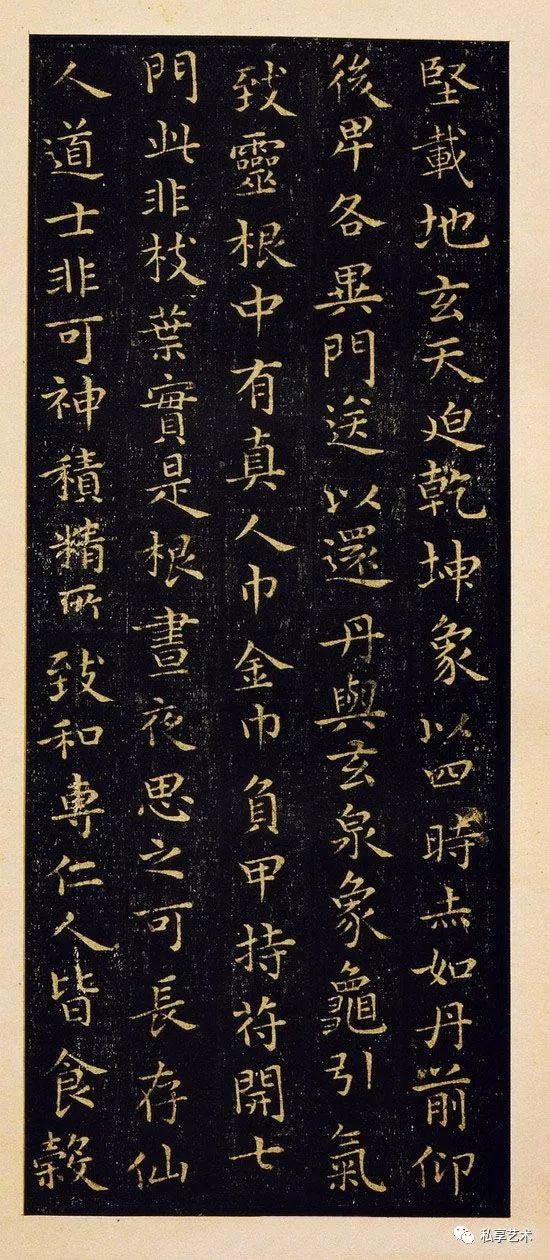 堅載地玄天迫乾坤象以四時赤如丹前仰
後卑各異門送以還丹與玄泉象龜引氣
致靈根中有真人巾金巾負甲持符開七
門此非枝葉實是根晝夜思之可長存仙
人道士非可神積精所致和專仁人皆食穀
私享艺术